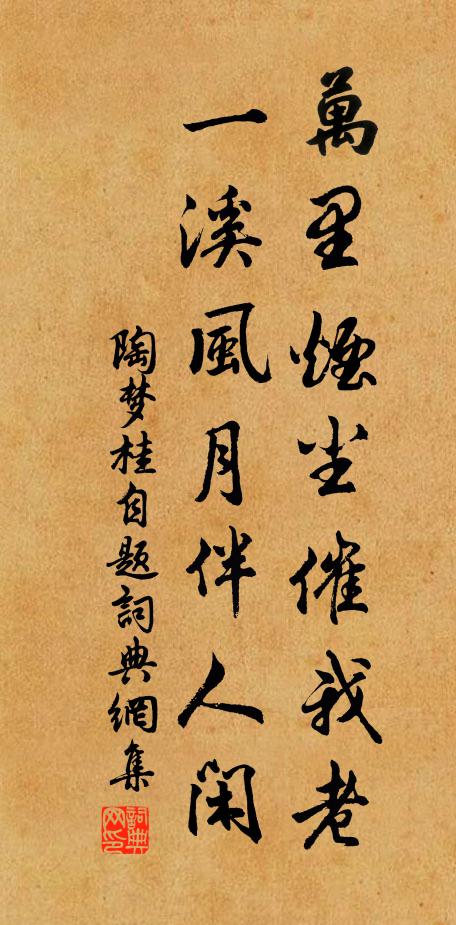 萬里煙尘催我老
一溪風月伴人闲
陶梦桂自题詞典網集
詞典网印